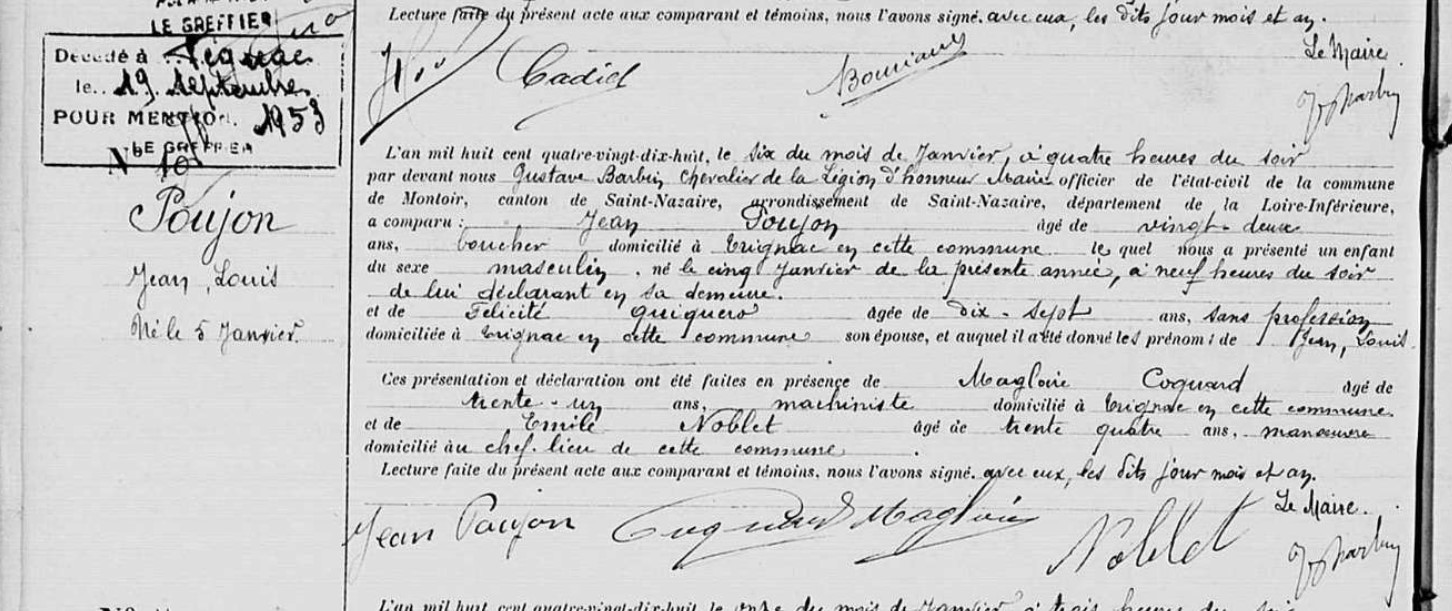 LE GREFFIER
Lecture faite du présent acte aux comparant et témoins, nous l'avons signé. avec eux, les dits jour mois et an.
Le Maire.
Cadiet
Décédé à
le.. 19 Septembre
1953
POUR MENTION.
LE GREFFIER
N° 10
Poujon
Jean, Louis
Né le 5 Janvier.
L'an mil huit cent quatre-vingt-dix-huit, le six du mois de Janvier, à quatre heures du soir
par devant nous Gustave Barbin Chevalier de la Légion d'honneur Maire officier de l'état-civil de la commune
de Montoir, canton de Saint-Nazaire, arrondissement de Saint-Nazaire, département de la Loire-Inférieure,
a comparu : Jean Poujon âgé de vingt-deux
ans, boucher domicilié à Trignac en cette commune lequel nous a présenté un enfant
du sexe masculin, né le cinq Janvier de la présente année, à neuf heures du soir
de lui déclarant en sa demeure.
et de Félicité Guiguero âgée de dix-sept ans, sans profession
domiciliée à Trignac en cette commune son épouse, et auquel il a été donné les prénoms de Jean, Louis.
Ces présentation et déclaration ont été faites en présence de Magloire Coquard âgé de
trente-un ans, machiniste domicilié à Trignac en cette commune
et de Emile Noblet âgé de trente quatre ans, manoeuvre
domicilié au chef-lieu de cette commune.
Lecture faite du présent acte aux comparant et témoins, nous l'avons signé. avec eux, les dits jour mois et an.
Le Maire.
Jean Poujon Coquard Magloire Noblet
L'an mil huit cent quatre-vingt-dix-huit, le onze du mois de Janvier à trois heures du soir